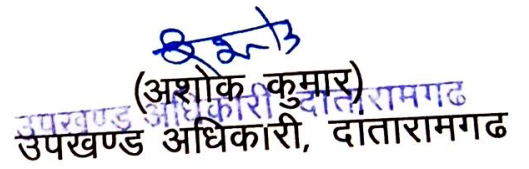 (अशोक कुमार)
उपखण्ड अधिकारी दातारामगढ
उपखण्ड अधिकारी, दातारामगढ